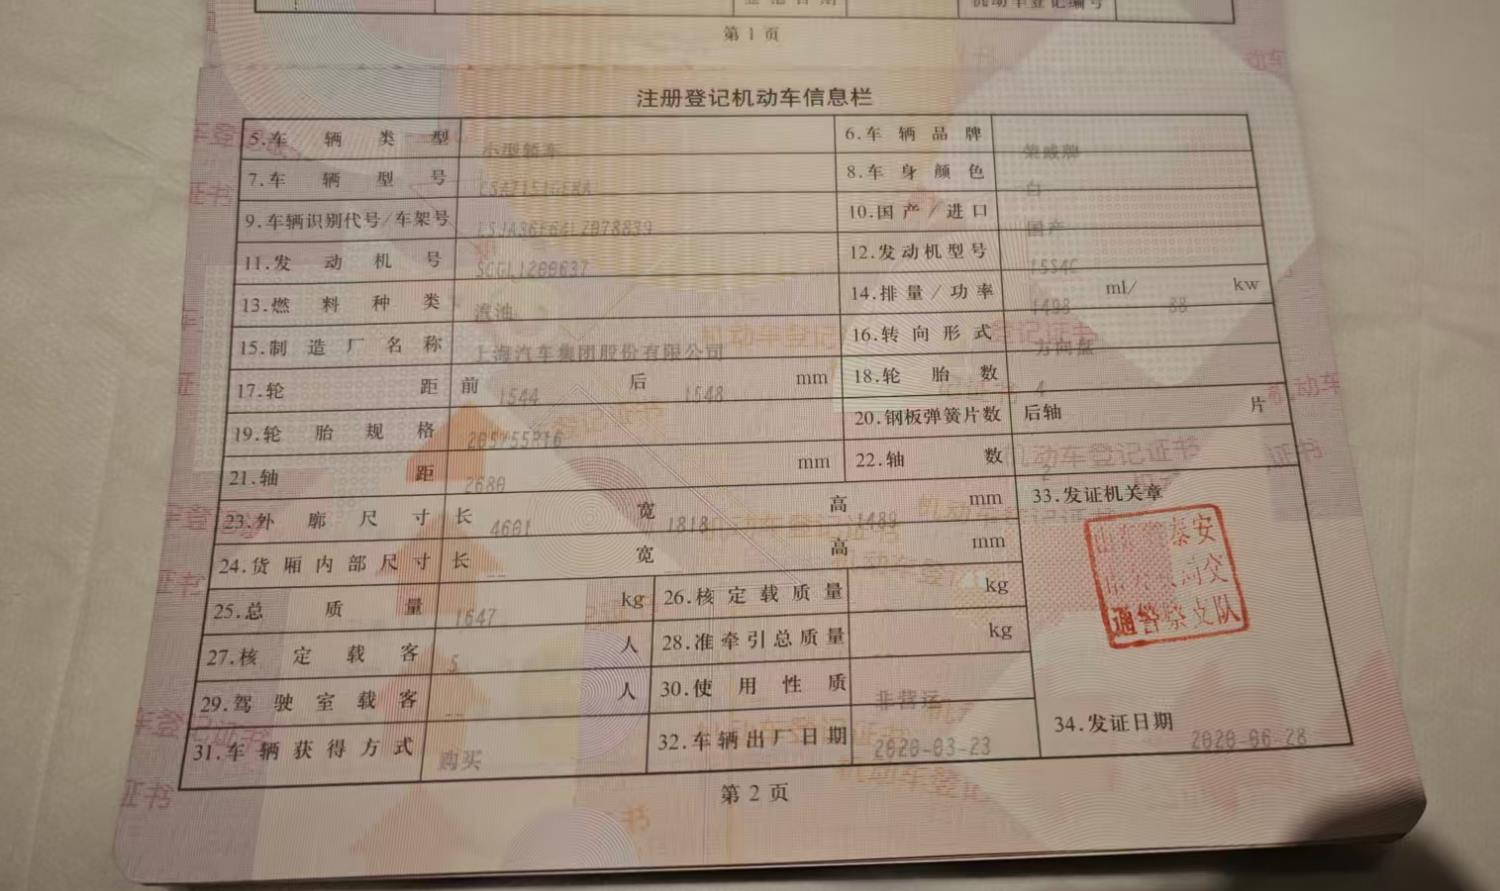 登记日期 机动车登记编号
第 1 页
注册登记机动车信息栏
5.车辆类型 小型轿车 6.车辆品牌 荣威牌
7.车辆型号 8.车身颜色 白
9.车辆识别代号/车架号 10.国产/进口 国产
11.发动机号 SCGL1200637 12.发动机型号 15S4C
13.燃料种类 汽油 14.排量/功率 1498 ml/ 88 kw
15.制造厂名称 上海汽车集团股份有限公司 16.转向形式 方向盘
17.轮距 前 1544 后 1548 mm 18.轮胎数 4
19.轮胎规格 205/55R16 20.钢板弹簧片数 后轴 片
21.轴距 2680 mm 22.轴数 2
23.外廓尺寸 长 4601 宽 1818 高 1489 mm 33.发证机关章
24.货厢内部尺寸 长 -- 宽 高 mm
25.总质量 1647 kg 26.核定载质量 kg
27.核定载客 5 人 28.准牵引总质量 -- kg
29.驾驶室载客 -- 人 30.使用性质 非营运
31.车辆获得方式 购买 32.车辆出厂日期 2020-03-23 34.发证日期 2020-06-28
泰安
局交
通警察支队
第 2 页